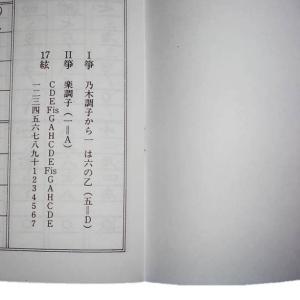 I箏　乃木調子から一は六の乙（五＝D）
II箏　楽調子（一＝A）
17絃　CDEFisGAHCDEFisGAHCDE
一二三四五六七八九十1234567